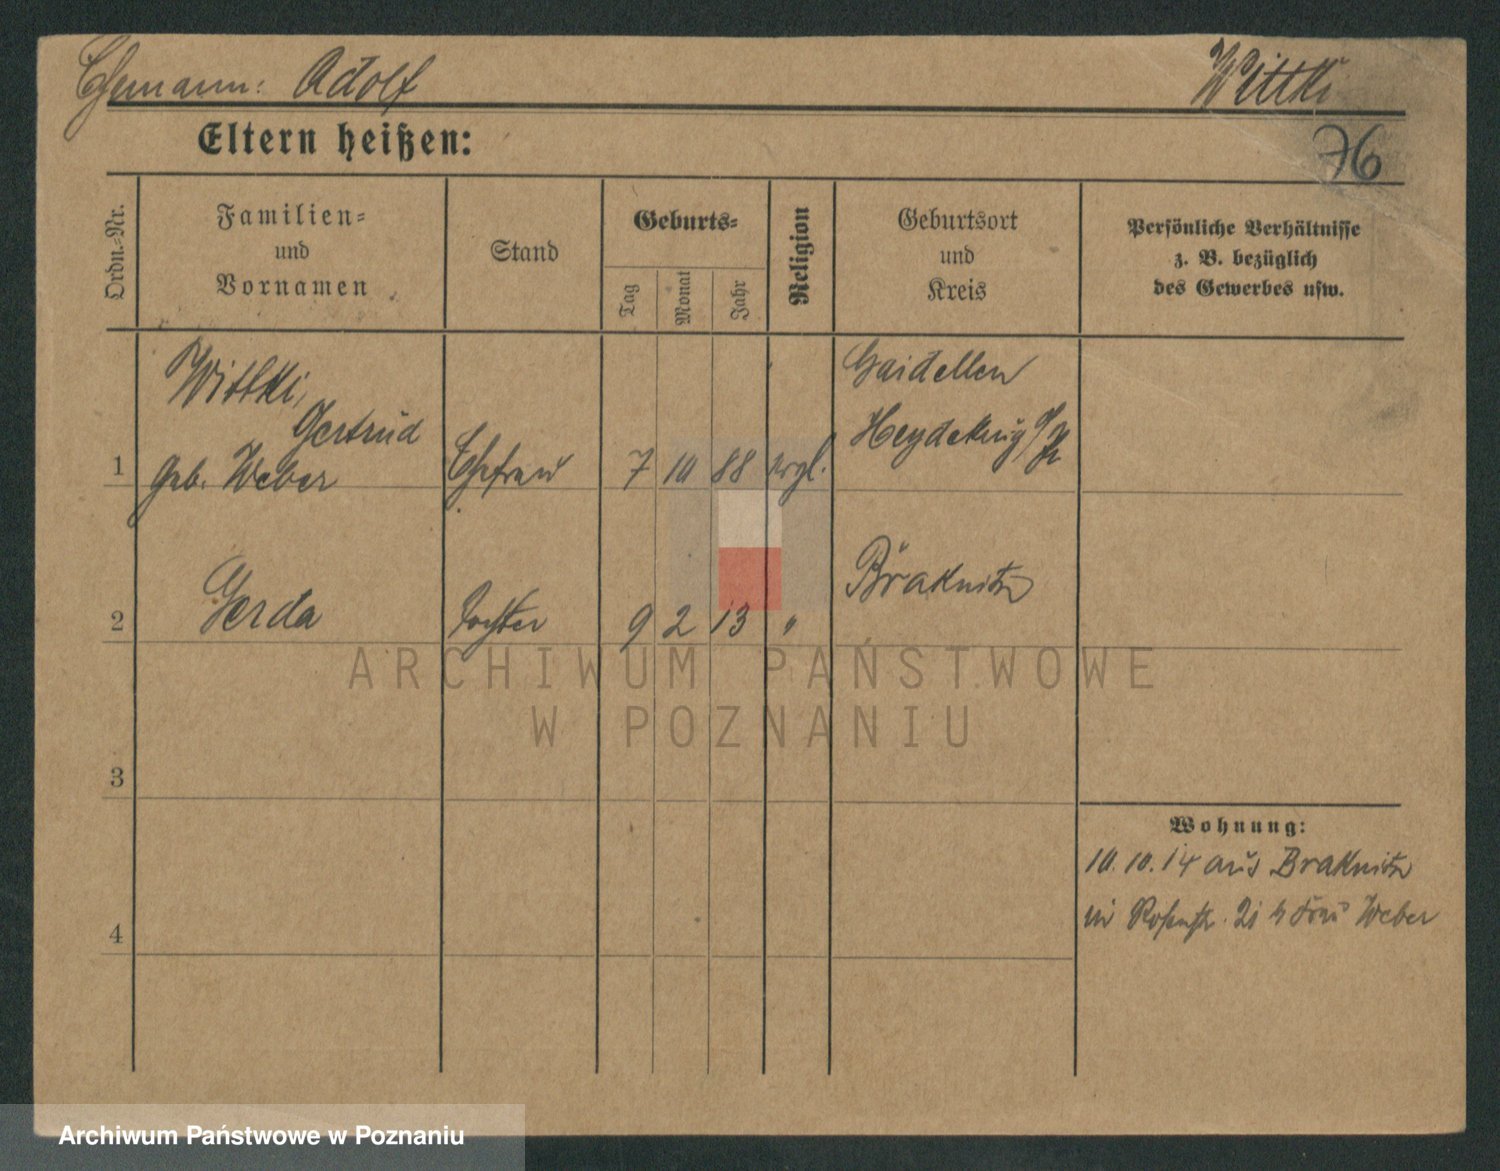 Ehemann: Adolf Wittki
Eltern heißen:
76
Ordn.=Nr.
Familien=
und
Vornamen
Stand
Geburts=
Tag
Monat
Jahr
Religion
Geburtsort
und
Kreis
Persönliche Verhältnisse
z. B. bezüglich
des Gewerbes usw.
1
Wittki,
Gertrud
geb. Weber
Ehefrau
7 10 88 evgl.
Gaidellen
Heydekrug
2
Gerda
Tochter
9 2 13 "
Braknitz
3
4
Wohnung:
10.10.14 aus Braknitz
in Rosenstr. 21 b Frau Weber
ARCHIWUM PAŃSTWOWE
W POZNANIU
Archiwum Państwowe w Poznaniu